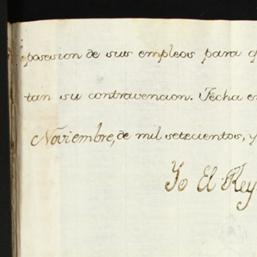 posesion de sus empleos para q
tan su contravencion. Fecha en
Noviembre, de mil setecientos, y
Yo El Rey